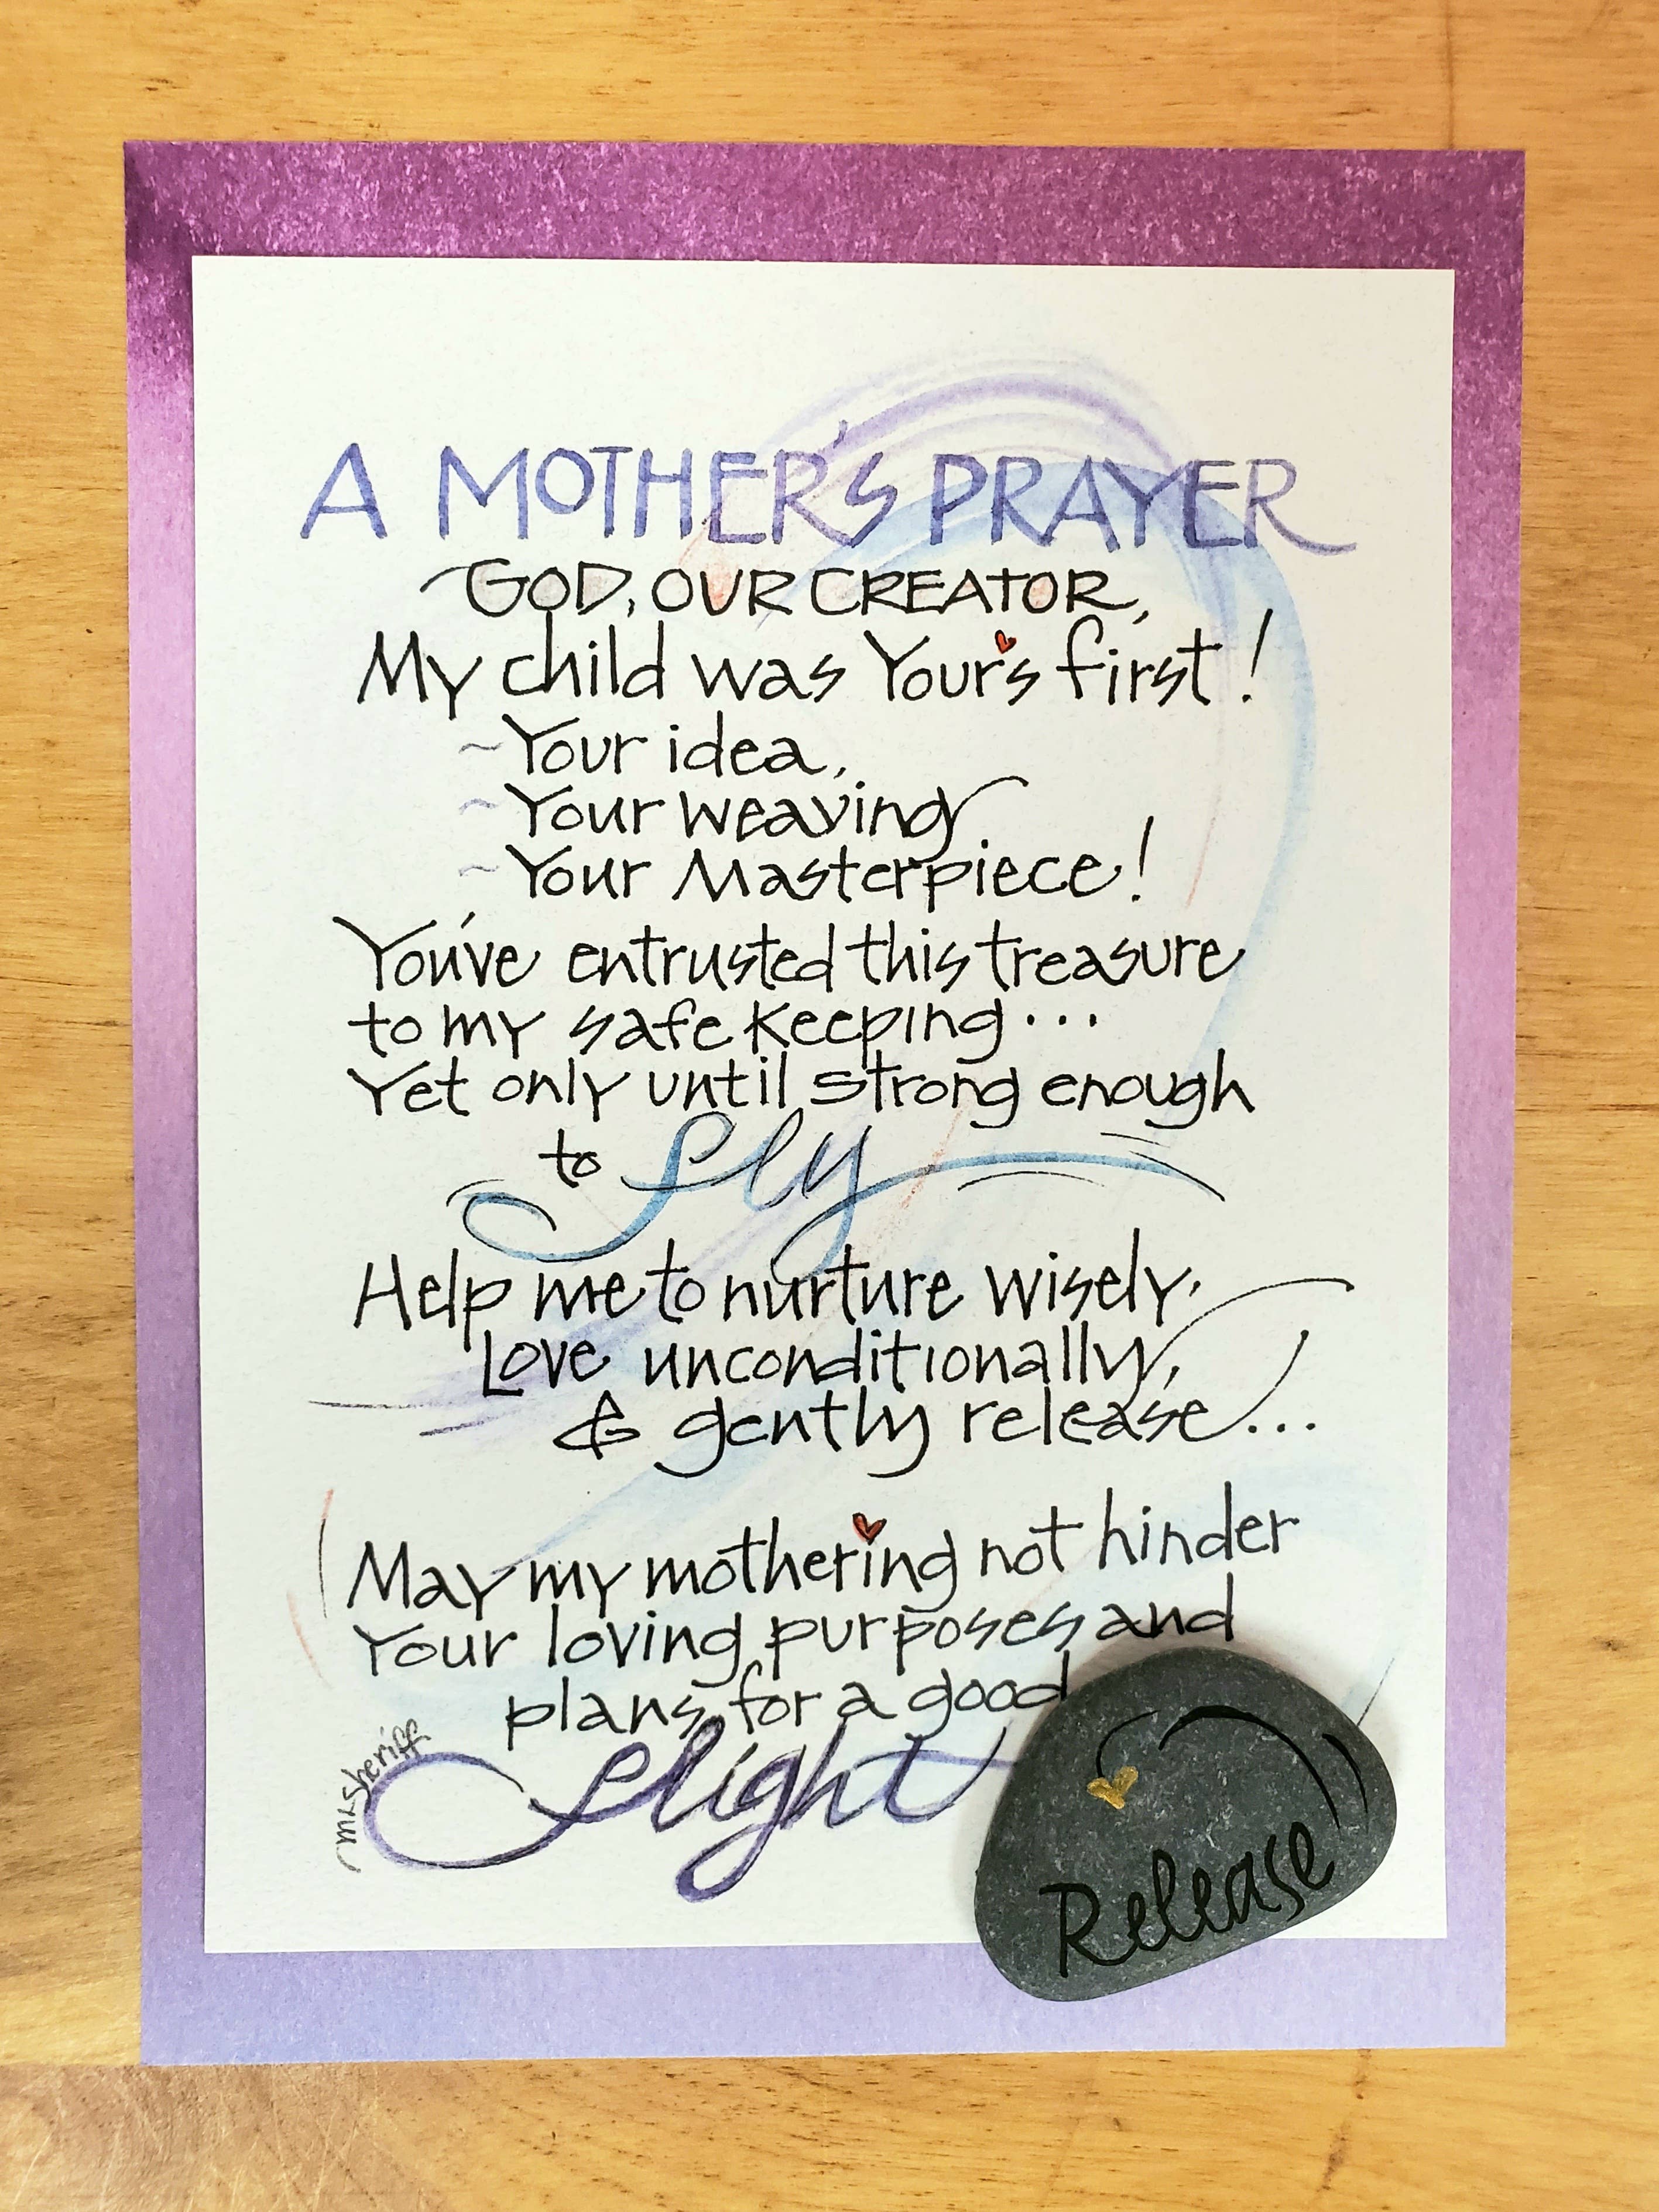 A MOTHER'S PRAYER
GOD, OUR CREATOR,
My child was Your's first!
~Your idea,
~Your weaving
~Your Masterpiece!
You've entrusted this treasure
to my safe keeping...
Yet only until strong enough
to fly
Help me to nurture wisely,
Love unconditionally,
& gently release...
May my mothering not hinder
Your loving purposes and
plans for a good
flight
mLsheriff
Release